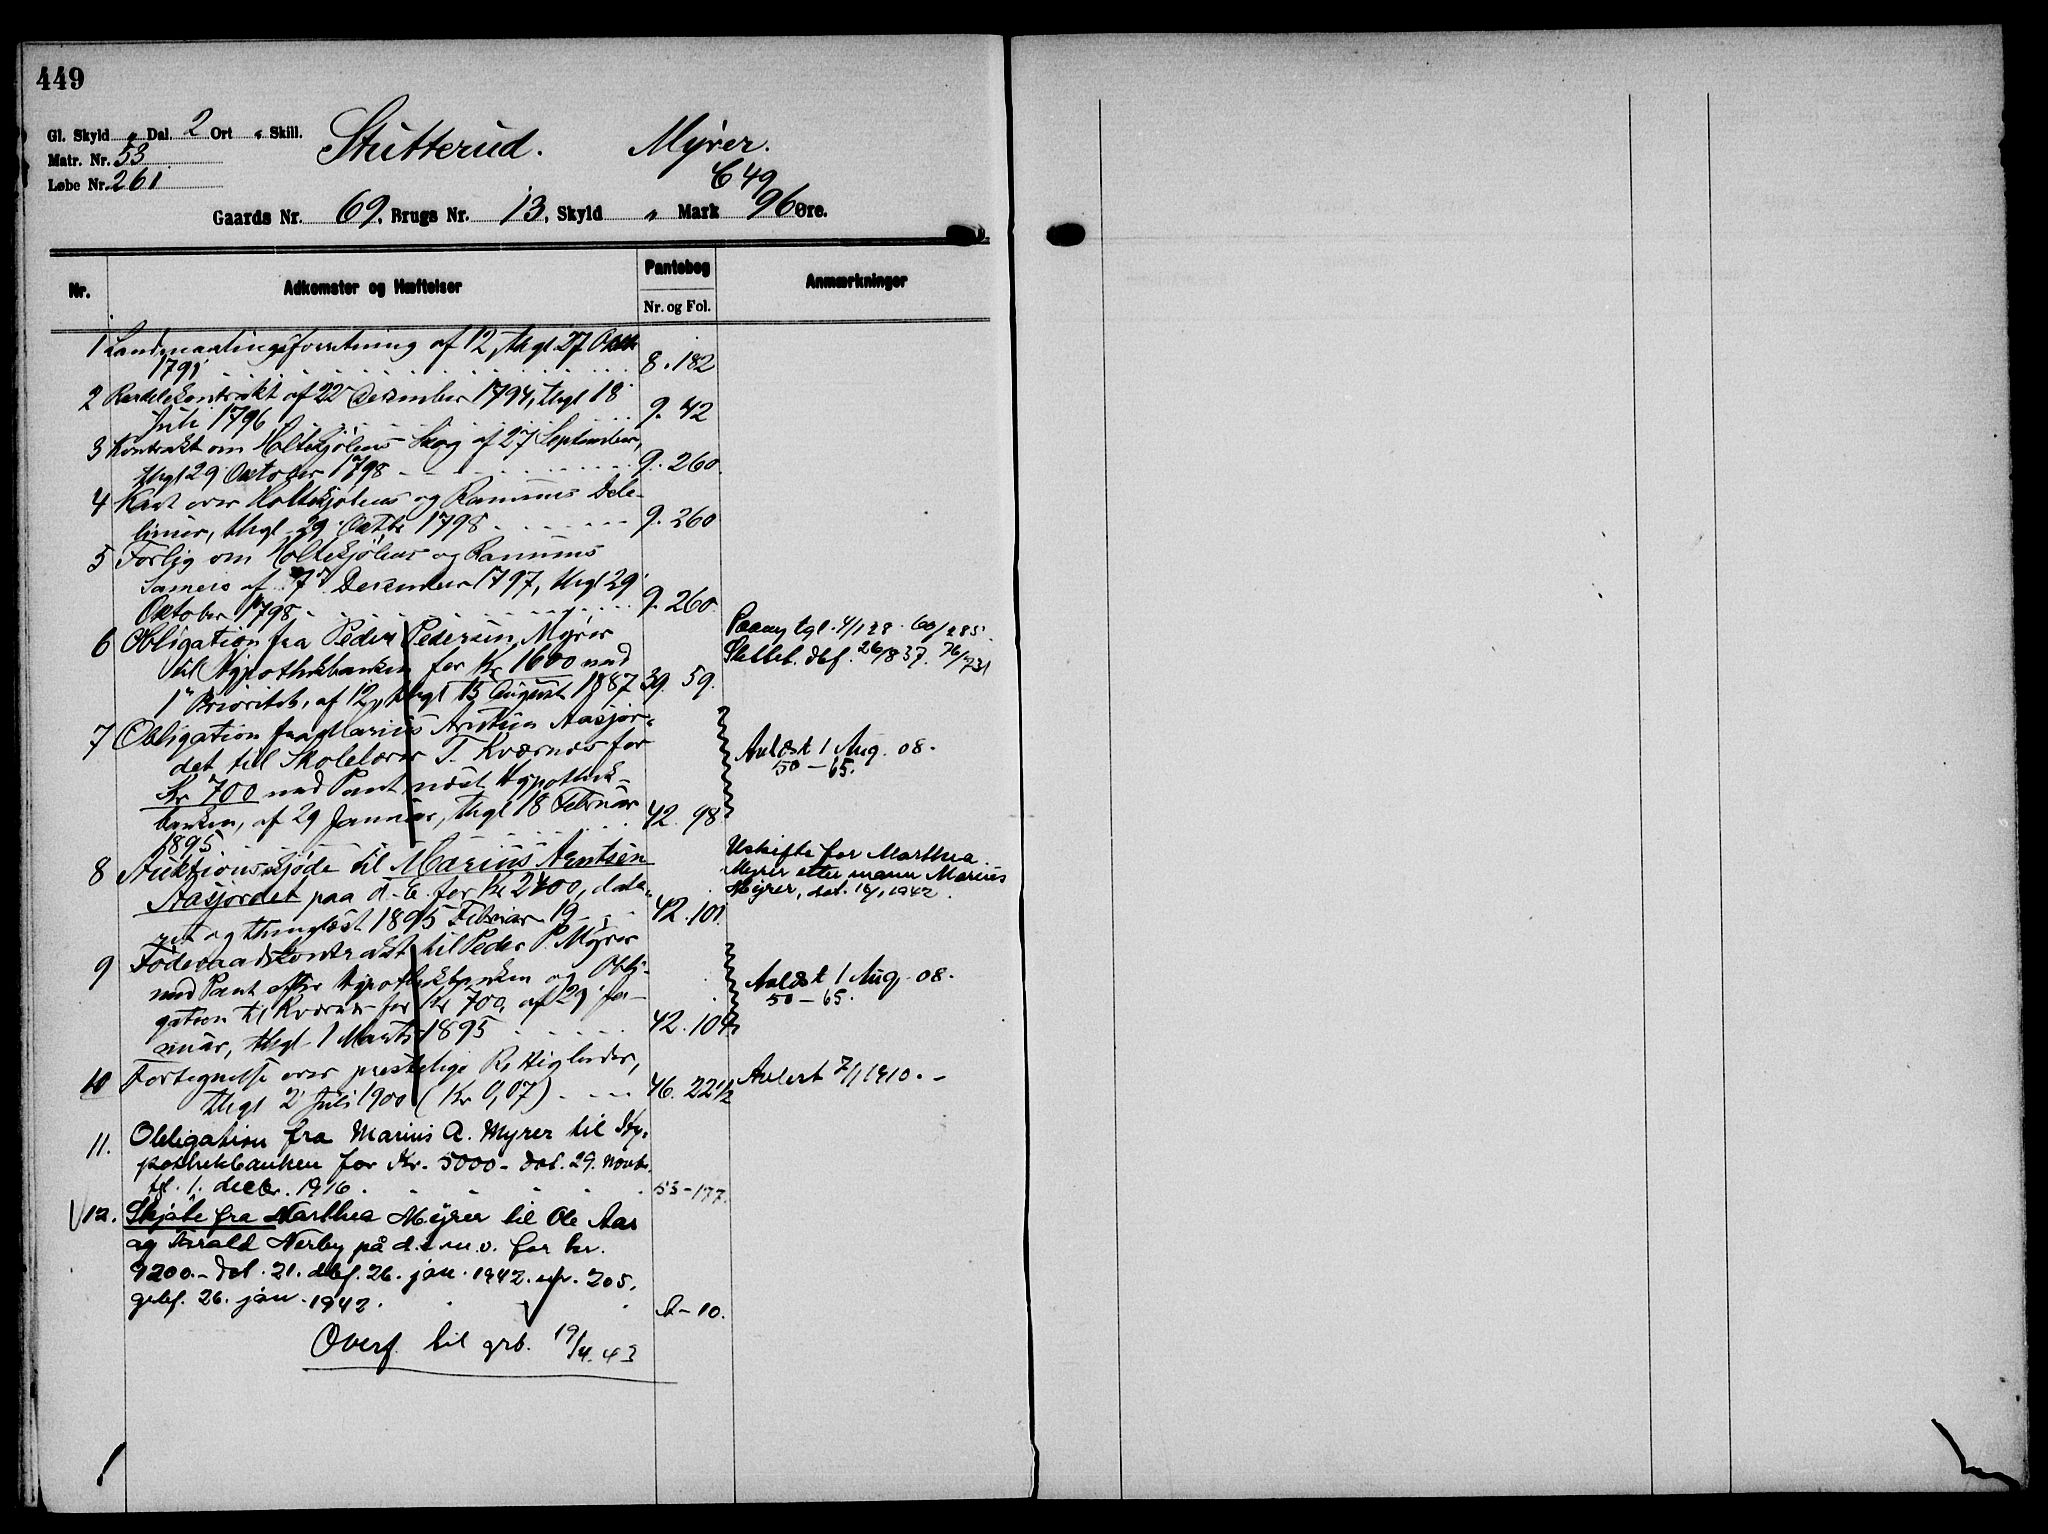 449
Gl. Skyld " Dal. 2 Ort " Skill.
Matr. Nr. 53
Løbe Nr. 261
Stutterud. Myrer.
C 49
Gaards Nr. 69, Brugs Nr. 13, Skyld " Mark 96 Øre.
Nr. Adkomster og Hæftelser Pantebog Anmærkninger
Nr. og Fol.
1 Landmaalingsforretning af 12, thgl 27 Oktb
1791 8. 182
2 kontrakt af 22 Dezember 1794, thgl 18
Juli 1796 9. 42
3 Kontrakt om Holtekjølens Skog af 27 September,
thgl 29 Oktober 1798 9. 260.
4 Kart over Holtekjølens og Ramums Dele-
linier, thgl 29 Oktbr 1798 9. 260
5 Forlig om Holtekjølens og Ramums
Sameie af 7 Dezember 1797, thgl 29
Oktober 1798 9. 260.
6 Obligation fra Peder Pedersen Myrer
til Hypothekbanken for Kr 1600 med
1ste Prioritet, af 12, thgl 15 August 1887 39. 59.
Paany tgl. 4/1 28. 60/285.
Slettet. dbf. 26/8 37. 76/731
7 Obligation fra Marius Arntsen Aasjor-
det til Skolelærer T. Kværnæs for
Kr 700 med Pant næst Hypothek-
banken, af 29 Januar, thgl 18 Februar
1895 42. 98
Aulæst 1 Aug. 08.
50 — 65.
8 Auktionsskjøde til Marius Arntsen
Aasjordet paa d. E. for Kr 2400, date-
ret og thinglæst 1895 Februar 19 42. 101.
Uskifte for Marthea
Myrer etter mann Marius
Myrer, dat. 14/1 1942.
9 Føderaadskontrakt til Peder P. Myrer
med Pant efter Hypothekbanken og Obli-
gation til Kværnæs for Kr 700, af 29 Ja-
nuar, thgl 1 Marts 1895 42. 104
Aulæst 1 Aug. 08.
50 — 65.
10 Fortegnelse over prestelige Rettigheder,
thgl 2 Juli 1900 (Kr 0,07) 46. 221/2
Aulest 7/1 1910. —
11. Obligation fra Marius A. Myrer til Hy-
pothekbanken for Kr. 5000.- dat. 29. novbr.
tgl. 1. decbr. 1916 53-177.
12. Skjøte fra Marthea Myrer til Ole Aas
og Harald Nerby på d. e. m. v. for kr.
9200.- dat. 21. dbf. 26. jan. 1942. nr. 205.
gbf. 26. jan. 1942. A-10.
Overf. til grb. 19/4. 43